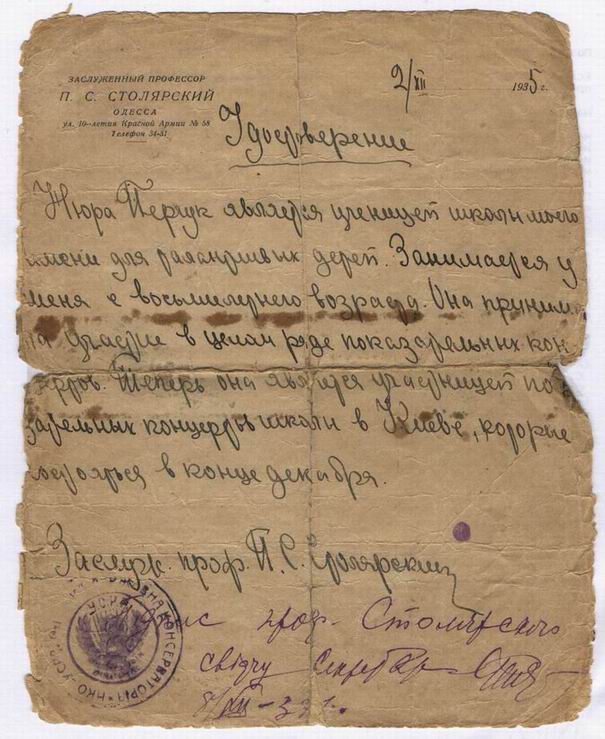 ЗАСЛУЖЕННЫЙ ПРОФЕССОР
П. С. СТОЛЯРСКИЙ
ОДЕССА
ул. 10-летия Красной Армии № 58
Телефон 34-51
2/XII 1935 г.
Удостоверение
Нюра Перчук является ученицей школы моего
имени для талантливых детей. Занимается у
меня с восьмилетнего возраста. Она приним
ла участие в целом ряде показательных кон
цертов. Теперь она является участницей по
зательных концертов школы в Киеве, которые
состояться в конце декабря.
Заслуж. проф. П. С. Столярский
проф. Столярского
свідчу Секретар
8/XII
КОНСЕРВАТОРІЯ НКО УСРР
УСРР